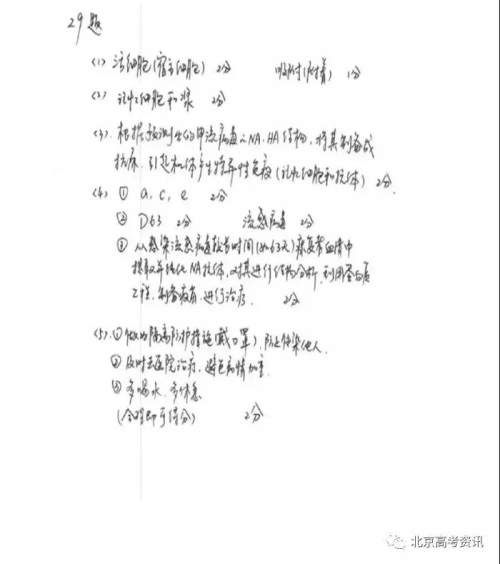 29题
(1) 活细胞(宿主细胞) 2分 吸附(附着) 1分
(2) 记忆细胞和浆 2分
(3) 根据预测出的甲流病毒的NA、HA结构,将其制备成
抗原,引起机体产生特异性免疫(记忆细胞和抗体) 2分
(4) ① a, c, e 2分
② D63 2分 流感病毒 2分
③ 从感染流感病毒较长时间(如63天)康复者血清中
提取并纯化NA抗体,对其进行结构分析,利用蛋白质
工程,制备疫苗,进行治疗. 2分
(5). ① 做好隔离防护措施(戴口罩),防止传染他人.
② 及时去医院治疗,避免病情加重.
③ 多喝水,多休息
(合理即可得分) 2分
北京高考资讯